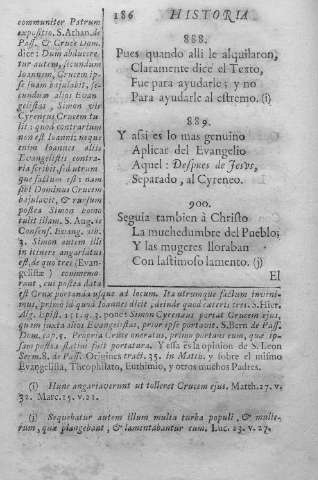 186 HISTORIA
communiter Patrum
expositio. S. Athan. de
Pass. & Cruce Dom.
dice: Dum abducere-
tur autem, secundum
Ioannem, Crucem ip-
se suam bajulabit, se-
cundum alios Evan-
gelistas, Simon vir
Cyrenęus Crucem tu-
lit: quod contrarium
non est Ioanni; neque
enim Ioannes aliis
Evangelistis contra-
ria scribit, sed utrum-
que factum est: nam
ist Dominus Crucem
bajulavit, & rursum
postea Simon homo
tulit illam. S. Aug. de
Consens. Evang. lib.
3. Simon autem illi
in itinere angariatus
est, de quo tres (Evan-
gelistæ) commemo-
rant, cui postea data
888.
Pues quando alli le alquilaron,
Claramente dice el Texto,
Fue para ayudarle; y no
Para ayudarle al estremo. (i)
889.
Y assi es lo mas genuino
Aplicar del Evangelio
Aquel: Despues de Jesvs,
Separado, al Cyreneo.
900.
Seguia tambien à Christo
La muchedumbre del Pueblo;
Y las mugeres lloraban
Con lastimoso lamento. (j)
El
est Crux portanda usque ad locum. Ita utrumque factum inveni-
mus, primò id quod Ioannes dicit, deinde quod cæteri tres. S. Hier.
Alg. Epist. 151. q. 3. pones Simon Cyreneus portat Crucem ejus,
quem juxta alios Evangelistas, prior ipse portavit. S. Bern. de Pass.
Dom. cap. 5. Propria Cruce oneratus, primo portans eum, quæ ip-
sam postea statim fuit portatura. Y essa es la opinion de S. Leon
Serm. 8. de Pass. Origines tract. 35. in Matth. y sobre el mismo
Evangelista, Theophilato, Euthimio, y otros muchos Padres.
(i) Hunc angariaverunt ut tolleret Crucem ejus. Matth. 27. v.
32. Marc. 15. v. 21.
(j) Sequebatur autem illum multa turba populi, & mulie-
rum, quæ plangebant, & lamentabantur eum. Luc. 23. v. 27.